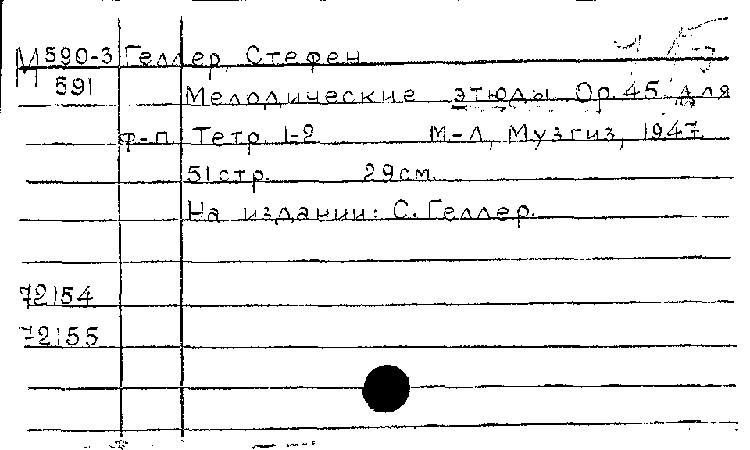 М 590-3 Геллер, Стефен
591
Мелодические этюды Ор.45 для
ф-п. Тетр. 1-2 М-Л, Музгиз, 1947.
51стр. 29см.
На издании: С. Геллер.
72154
72155